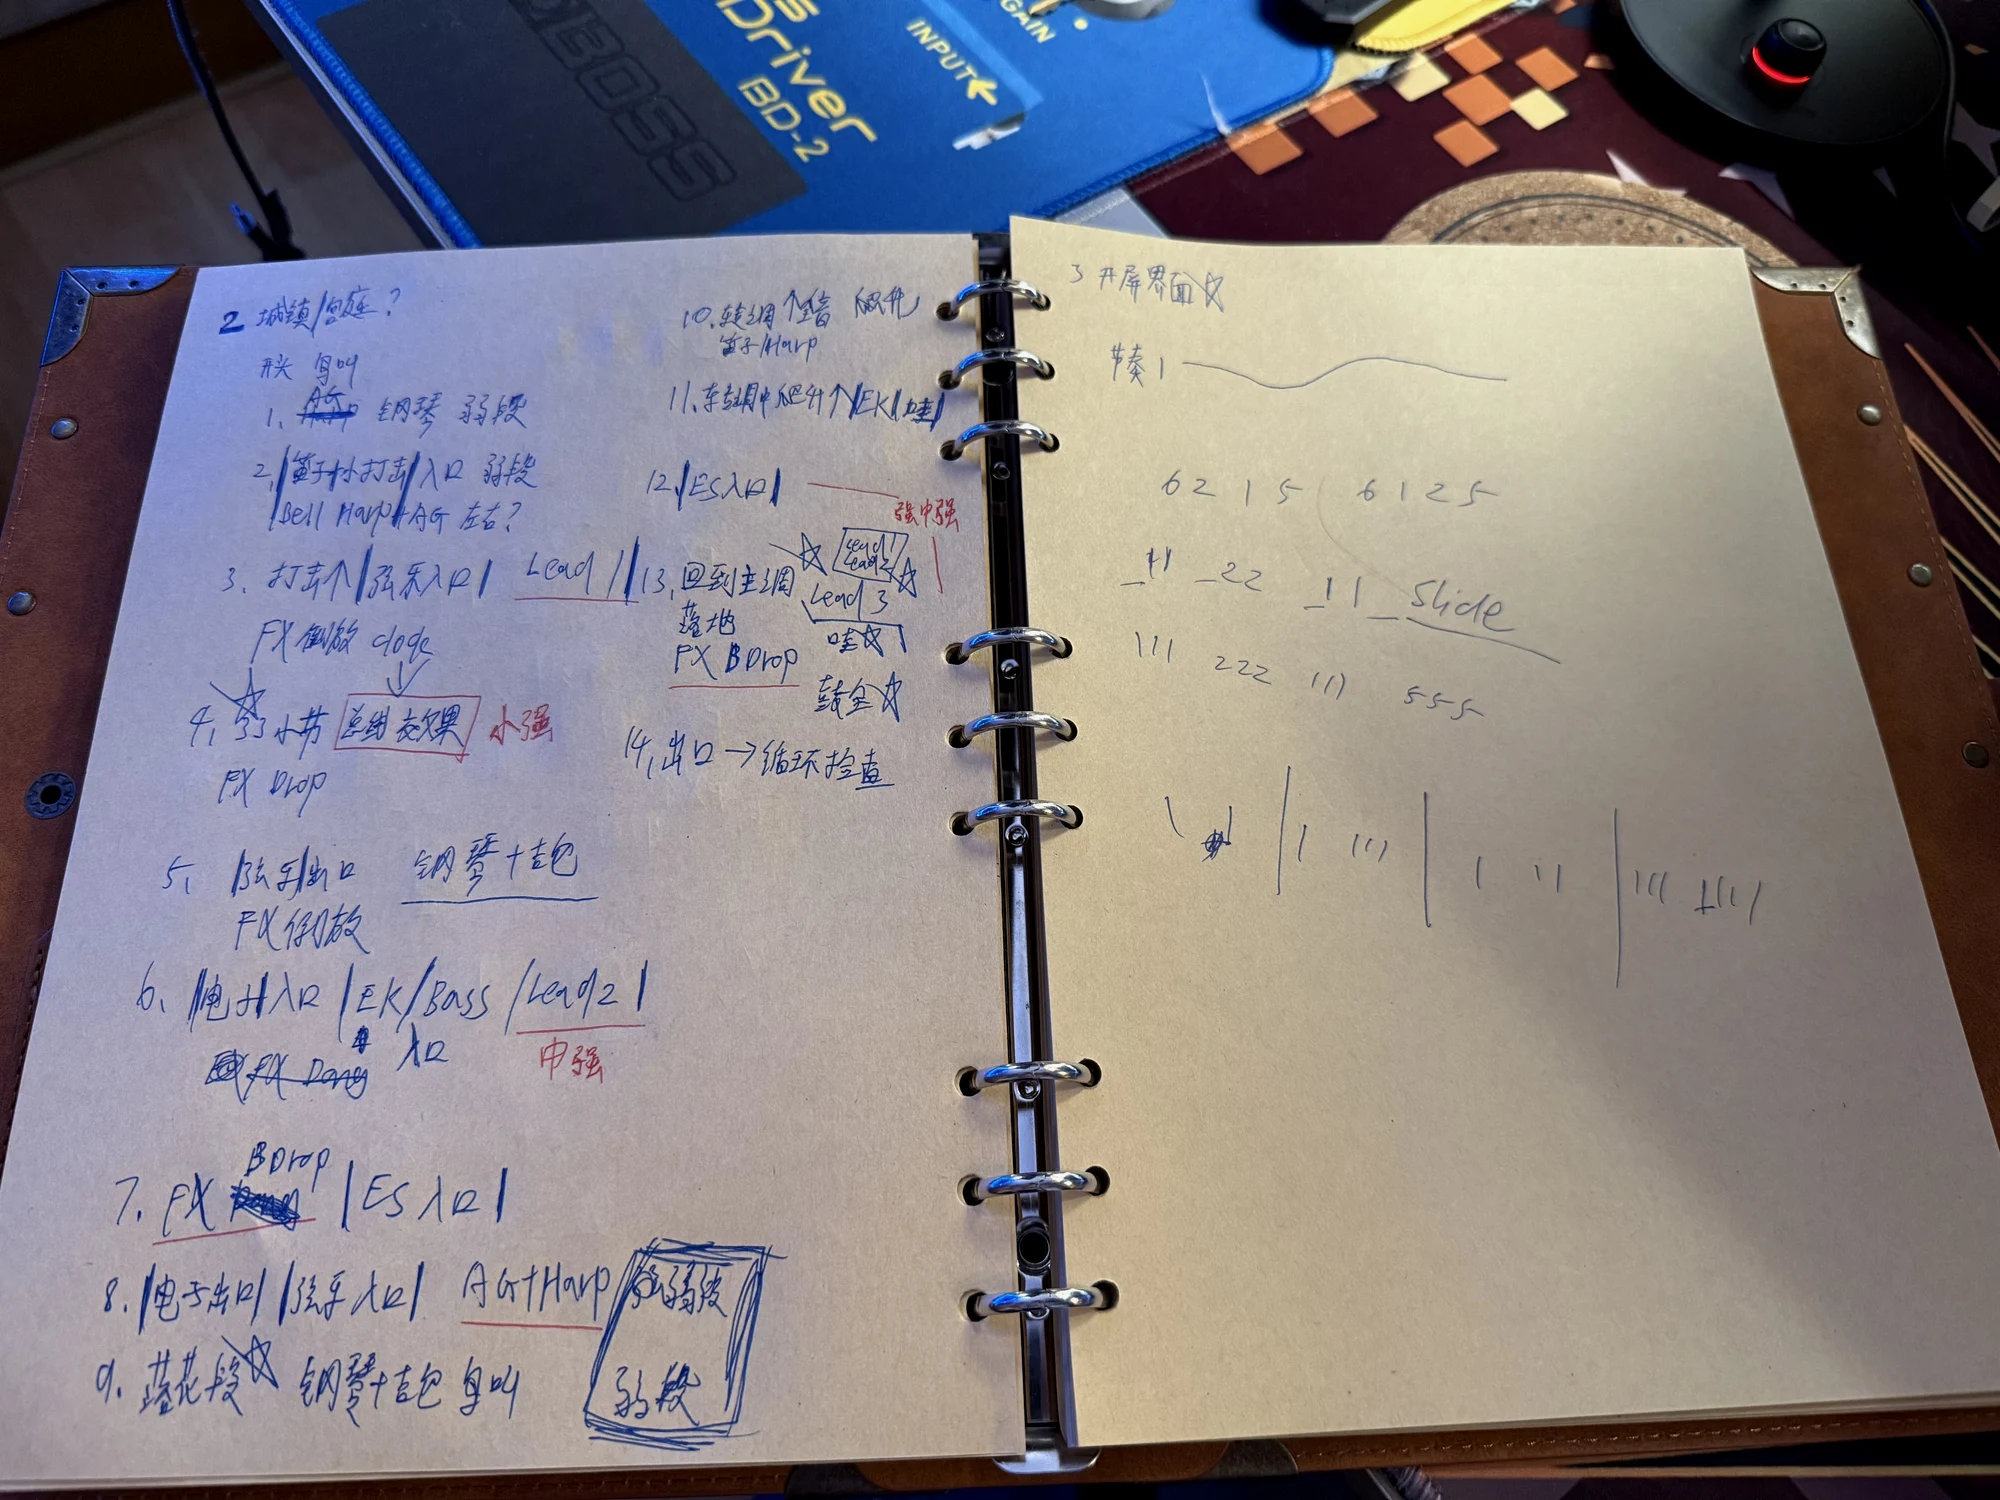 BOSS
Driver
BD-2
INPUT
GAIN
2 城镇/家庭?
开头 鸟叫
1、AG 钢琴 弱段
2、笛子 小打击 入口 弱段
Bell Harp+AG 左右?
3、打击个 弦乐入口 Lead 1
FX 倒放 clock
4、小节 总线效果 小强
FX Drop
5、弦乐出口 钢琴+吉他
FX 倒放
6、电子入口 EK/Bass/Lead2
入口
中强
7、FX BDrop ES入口
8、电子出口 弦乐入口 AG+Harp 弱段
9、落花段 钢琴+吉他 鸟叫 弱段
10、转调 个 爬升
笛子/Harp
11、转调中爬升 个 EK 哇
12、ES入口
强中强
13、回到主调 Lead1 Lead2
落地 Lead 3
FX BDrop 哇
鼓全
14、出口 → 循环检查
3 开屏界面
节奏 1
6 2 1 5 6 1 2 5
_11 _22 _11 _Slide
111 222 111 555